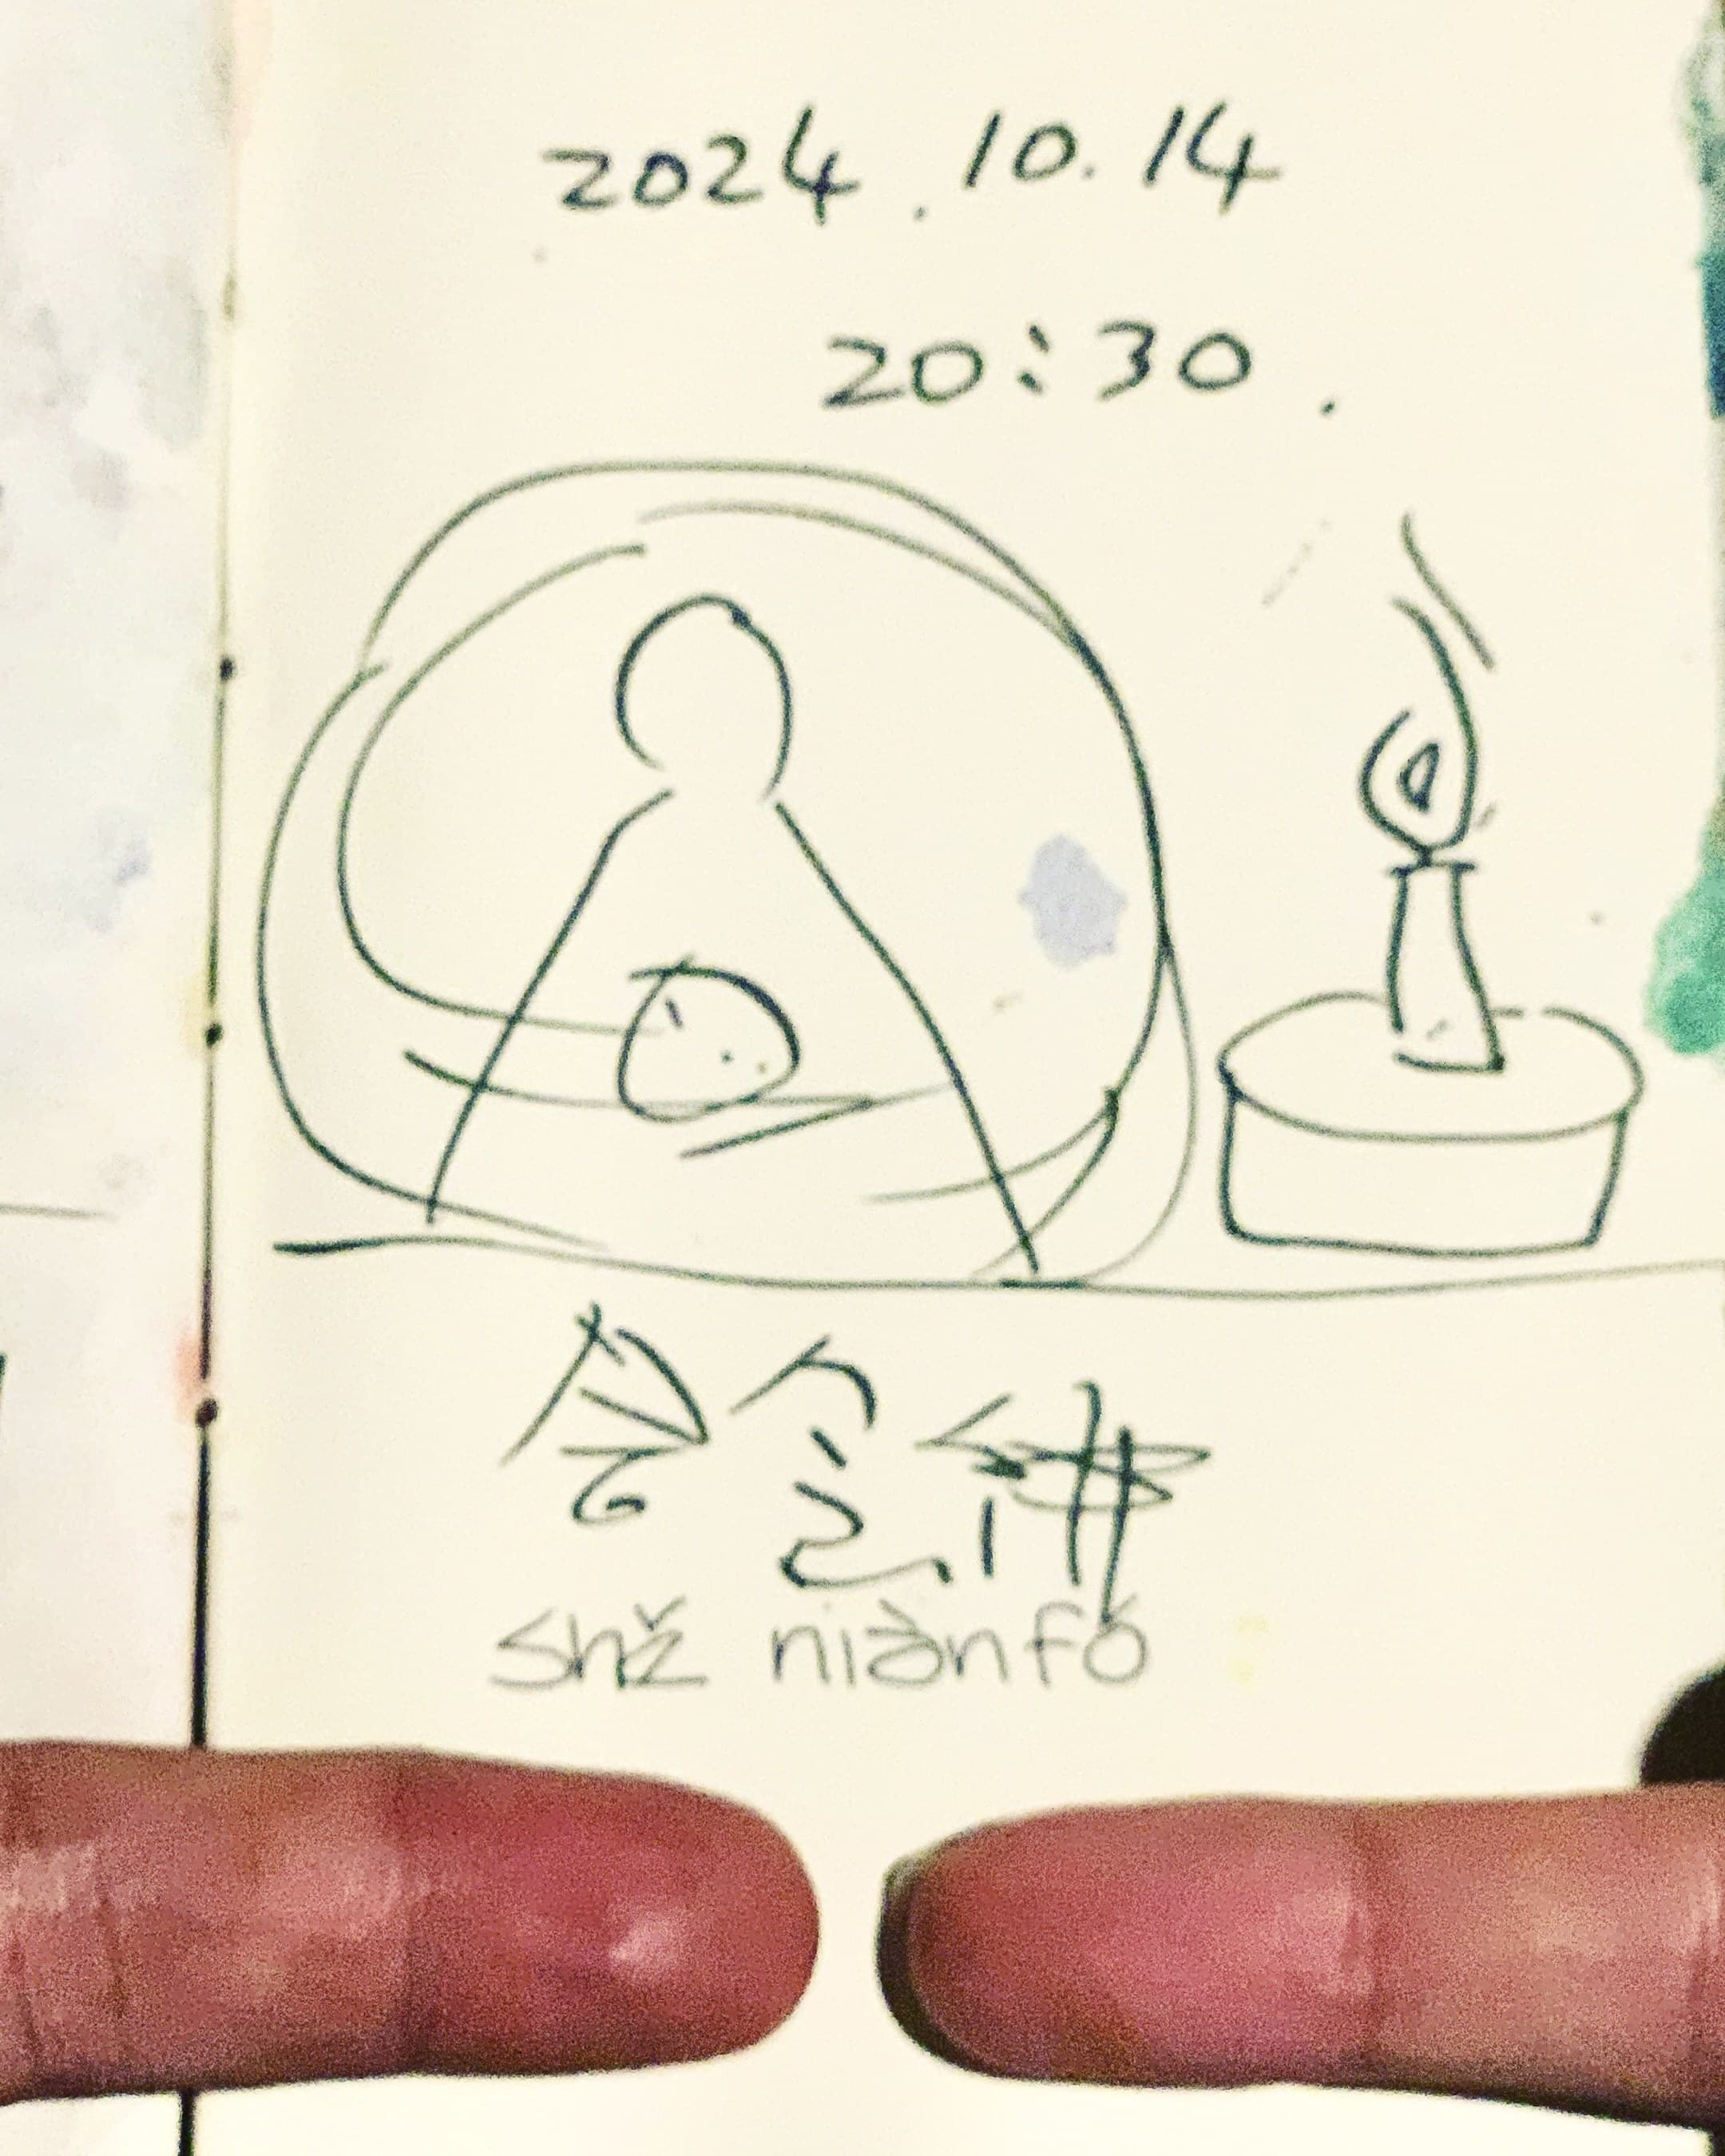 2024.10.14
20:30.
念佛
niànfó